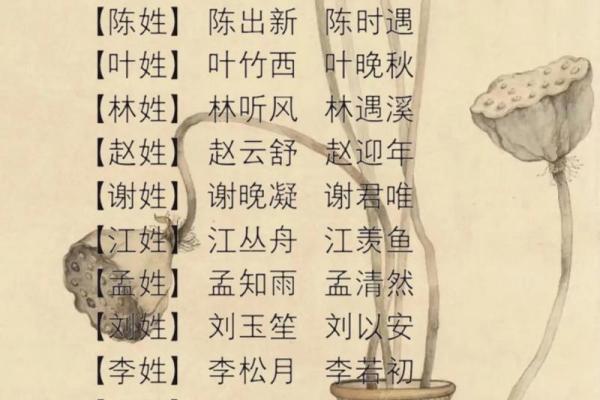 【陈姓】 陈出新 陈时遇
【叶姓】 叶竹西 叶晚秋
【林姓】 林听风 林遇溪
【赵姓】 赵云舒 赵迎年
【谢姓】 谢晚凝 谢君唯
【江姓】 江丛舟 江羡鱼
【孟姓】 孟知雨 孟清然
【刘姓】 刘玉笙 刘以安
【李姓】 李松月 李若初